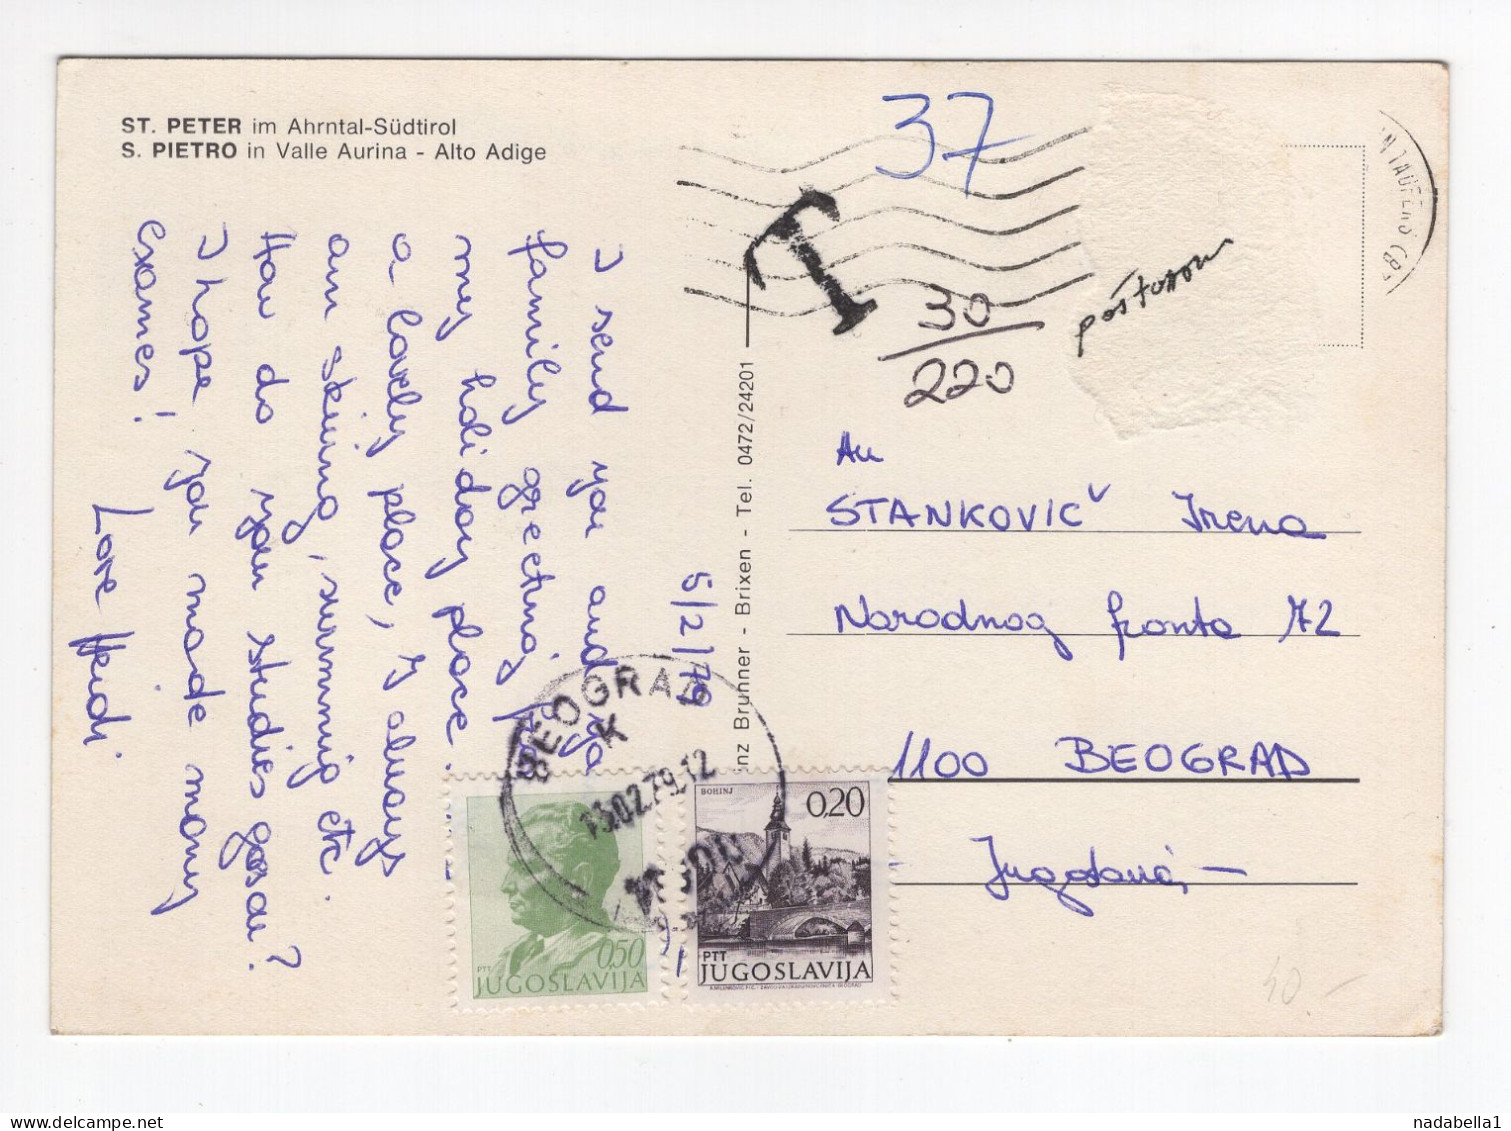 ST. PETER im Ahrntal-Südtirol
S. PIETRO in Valle Aurina - Alto Adige
37
T
30
220
5/2/79
I send you and
family greeting
my holiday place.
a lovely place, I always
am skiing, swimming etc.
How do your studies
I hope you made many
exames!
Love Heidi
Brunner - Brixen - Tel. 0472/24201
An
STANKOVIČ Irena
Narodnog fronta 72
1100 BEOGRAD
Jugoslavia
BEOGRAD
K
02.79.12
0,50
PTT
JUGOSLAVIJA
BOHINJ
0,20
PTT
JUGOSLAVIJA
nadabella1